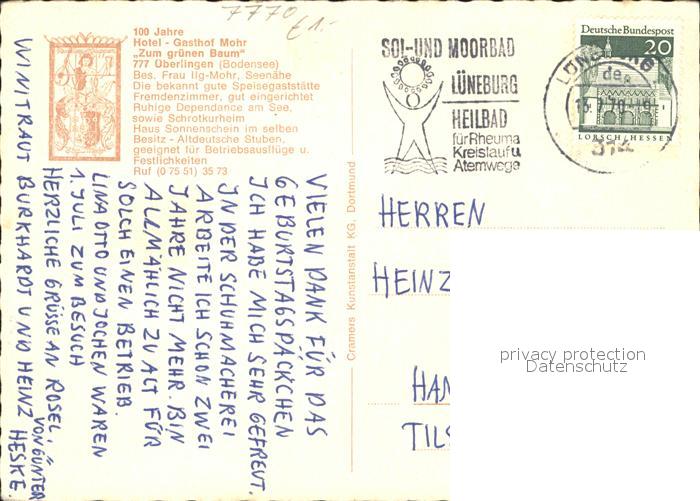 7770
£1.-
100 Jahre
Hotel - Gasthof Mohr
„Zum grünen Baum"
777 Überlingen (Bodensee)
Bes. Frau Ilg-Mohr, Seenähe
Die bekannt gute Speisegaststätte
Fremdenzimmer, gut eingerichtet
Ruhige Dependance am See,
sowie Schrotkurheim
Haus Sonnenschein im selben
Besitz - Altdeutsche Stuben,
geeignet für Betriebsausflüge u.
Festlichkeiten
Ruf (0 75 51) 35 73
VIELEN DANK FÜR DAS
GEBURTSTAGSPÄCKCHEN
ICH HABE MICH SEHR GEFREUT.
IN DER SCHUHMACHEREI
ARBEITE ICH SCHON ZWEI
JAHRE NICHT MEHR. BIN
ALLMÄHLICH ZU ALT FÜR
SOLCH EINEN BETRIEB.
LINA OTTO UND JOCHEN WAREN
1. JULI ZUM BESUCH
HERZLICHE GRÜSSE AN ROSEL,
VON GÜNTER
WINITRAUT BURKHARDT UND HEINZ HESKE
Cramers Kunstanstalt KG, Dortmund
SOL-UND MOORBAD
LÜNEBURG
HEILBAD
für Rheuma
Kreislauf u
Atemwege
Deutsche Bundespost
20
LORSCH/HESSEN
LÜNEBURG
de
314
HERREN
HEINZ
HAN
TILS
privacy protection
Datenschutz